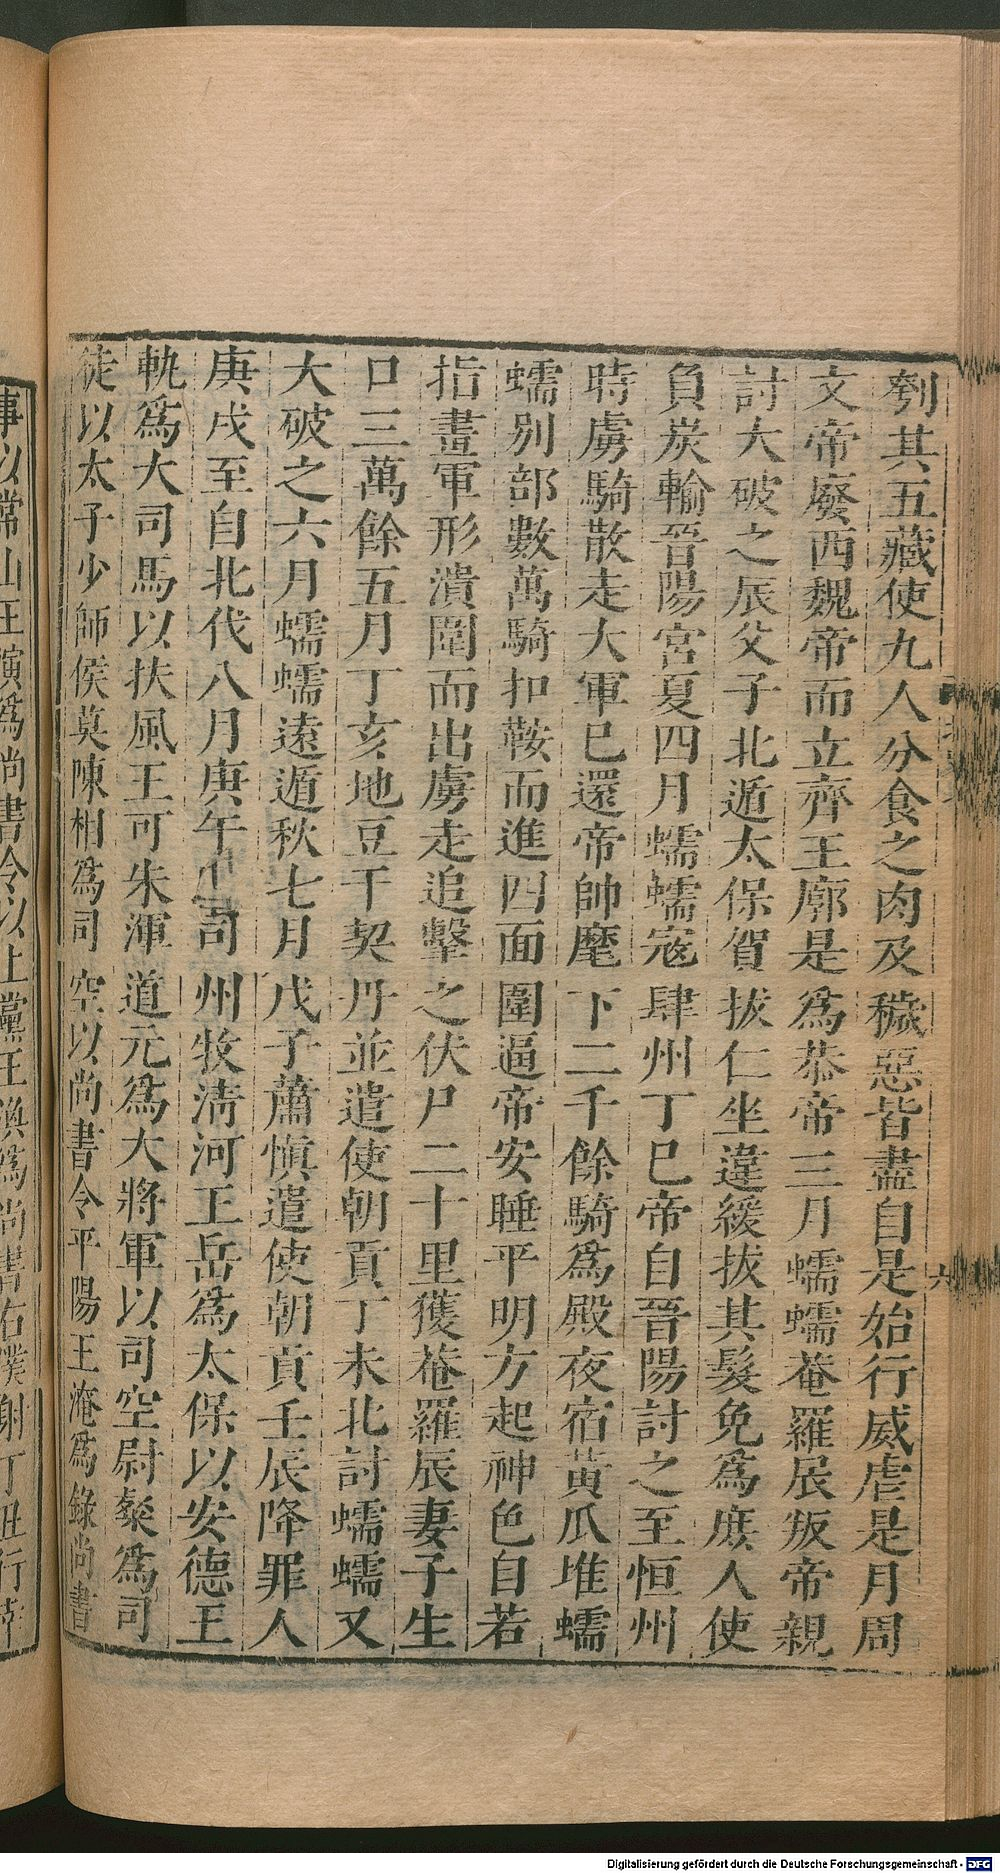 刳其五藏使九人分食之肉及穢惡皆盡自是始行威虐是月周
文帝廢西魏帝而立齊王廓是為恭帝三月蠕蠕菴羅辰叛帝親
討大破之辰父子北遁太保賀拔仁坐違緩拔其髮免為庶人使
負炭輸晉陽宮夏四月蠕蠕寇肆州丁巳帝自晉陽討之至恒州
時虜騎散走大軍已還帝帥麾下二千餘騎為殿夜宿黃瓜堆蠕
蠕別部數萬騎扣鞍而進四面圍逼帝安睡平明方起神色自若
指畫軍形潰圍而出虜走追擊之伏尸二十里獲菴羅辰妻子生
口三萬餘五月丁亥地豆干契丹並遣使朝貢丁未北討蠕蠕又
大破之六月蠕蠕遠遁秋七月戊子蕭慎遣使朝貢壬辰降罪人
庚戌至自北伐八月庚午以司州牧清河王岳為太保以安德王
軌為大司馬以扶風王可朱渾道元為大將軍以司空尉粲為司
徒以太子少師侯莫陳相為司空以尚書令平陽王淹為錄尚書
事以常山王演為尚書令以上黨王渙為尚書右僕射丁丑行幸
六
Digitalisierung gefördert durch die Deutsche Forschungsgemeinschaft - DFG